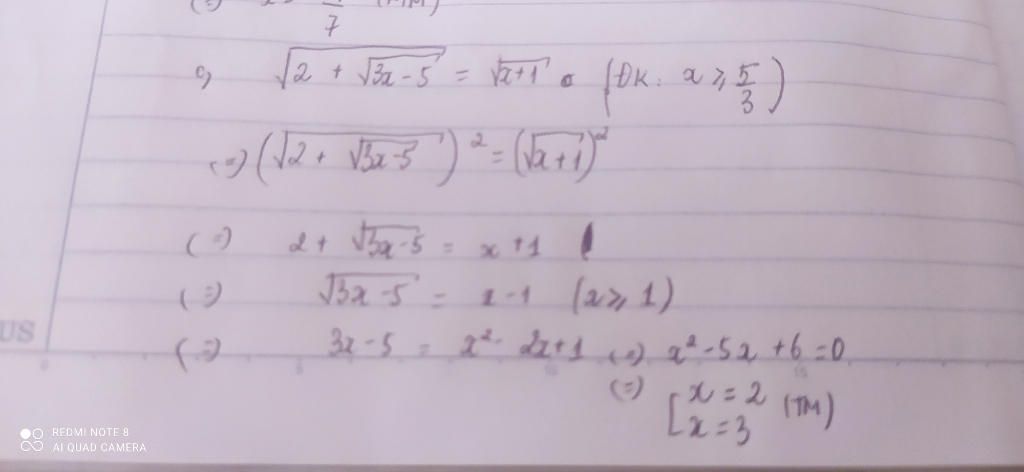 7
c, √(2 + √(3x-5)) = √(x+1) (ĐK: x ≥ 5/3)
(=) (√(2 + √(3x-5)))² = (√(x+1))²
(=) 2 + √(3x-5) = x+1
(=) √(3x-5) = x-1 (x ≥ 1)
(=) 3x-5 = x² - 2x+1 (=) x² - 5x + 6 = 0
(=) [x = 2
x = 3 (TM)
US
REDMI NOTE 8
AI QUAD CAMERA